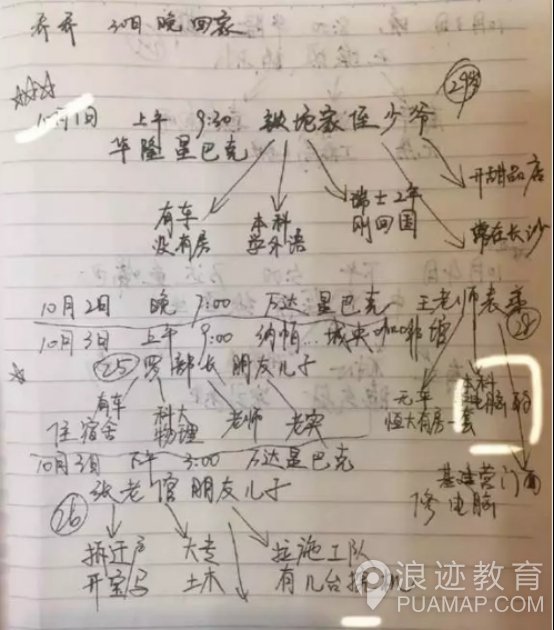 乔乔 30日晚回家
29岁
10月1日 上午 9:30 铁坨家侄少爷
华隆星巴克
开甜品店
有车
没有房
本科
学外语
瑞士2年
刚回国
常在长沙
10月2日 晚 7:00 万达 星巴克 王老师表弟
10月3日 上午 9:00 纳帕 城央咖啡馆
28
25 罗部长 朋友儿子
有车
住宿舍
科大
物理
老师
老实
无车
恒大有房一套
本科
电脑
基建营门面
修电脑
10月3日 下午 3:00 万达星巴克
26 张老倌朋友儿子
拆迁户
开宝马
大专
土木
拉施工队
有几台挖机
浪迹教育
PUAMAP.COM